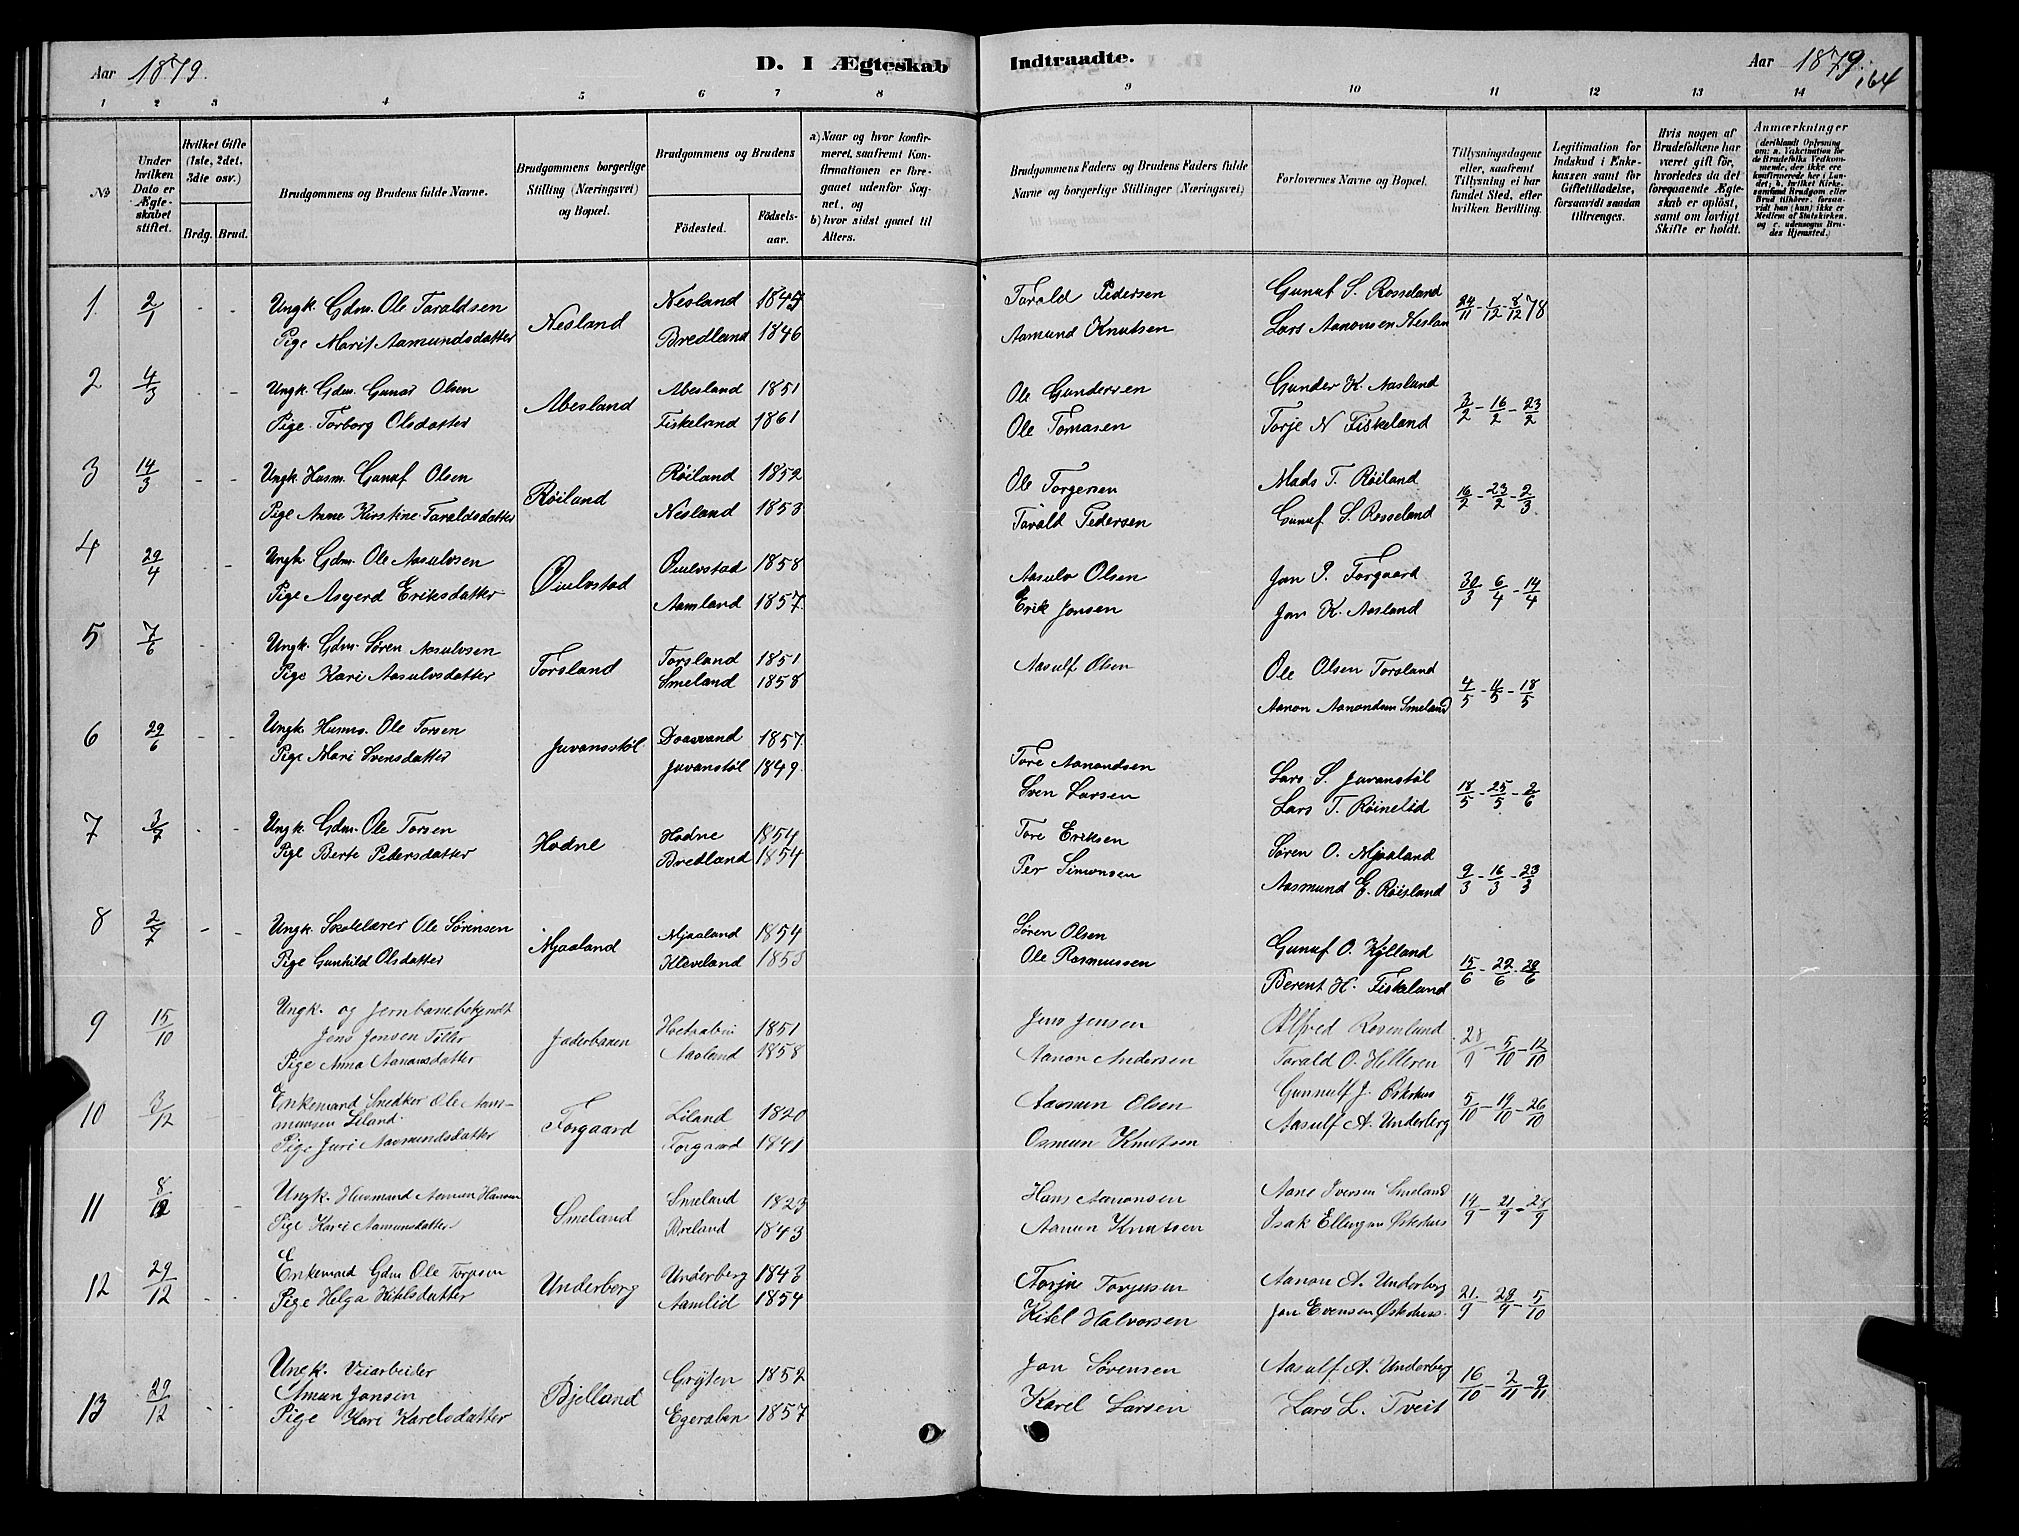 Aar 1879.
D. I Ægteskab Indtraadte.
Aar 1879.
164
1 2 3 4 5 6 7 8 9 10 11 12 13 14
No
Under hvilken Dato er Ægteskabet stiftet.
Hvilket Gifte (1ste, 2det, 3die osv.)
Brdg. Brud.
Brudgommens og Brudens fulde Navne.
Brudgommens borgerlige Stilling (Næringsvei) og Bopæl.
Brudgommens og Brudens
Födested.
Födsels-aar.
a) Naar og hvor konfirmeret, saafremt Konfirmationen er foregaaet udenfor Sognet, og
b) hvor sidst gaaet til Alters.
Brudgommens Faders og Brudens Faders fulde Navne og borgerlige Stillinger (Næringsvei)
Forlovernes Navne og Bopæl.
Tillysningsdagene eller, saafremt Tillysning ei har fundet Sted, efter hvilken Bevilling.
Legitimation for Indskud i Enkekassen samt for Giftetilladelse, forsaavidt saadan tiltrænges.
Hvis nogen af Brudefolkene har været gift för, hvorledes da det foregaaende Ægteskab er oplöst, samt om lovligt Skifte er holdt.
Anmærkninger (deriblandt Oplysning om: a. Vakcination for de Brudefolks Vedkommende, der ikke ere konfirmerede her i Landet; b. hvilket Kirkesamfund Brudgom eller Brud tilhörer, forsaavidt han (hun) ikke er Medlem af Statskirken. og c. udensogns Brudes Hjemsted.)
1 2/1 - - Ungk. Gdm. Ole Taraldsen Nesland Nesland 1845 Tarald Pedersen Gunuf S. Rosseland 24/11 - 1/12 - 8/12 78
Pige Marit Aamundsdatter Bredland 1846 Aamund Knutsen Lars Aanonsen Neslan
2 4/3 - - Ungk. Gdm. Gunar Olsen Abesland Abesland 1851 Ole Gundersen Gunder K. Aasland 3/2 - 16/2 - 23/2
Pige Torborg Olsdatter Fiskeland 1861 Ole Tomasen Torje N Fiskeland
3 14/3 - - Ungk. Husm. Gunuf Olsen Röiland Röiland 1852 Ole Torgersen Mads T. Röiland 16/2 - 23/2 - 2/3
Pige Anne Kirstine Taraldsdatter Nesland 1853 Tarald Pedersen Gunuf S. Rosseland
4 29/4 Ungk. Gdm. Ole Aasulvsen Öiulvstad Öiulvstad 1858 Aasulv Olsen Jon P. Forgaard 30/3 - 6/4 - 14/4
Pige Asgerd Eriksdatter Aamland 1857. Erik Jonsen Jon K. Aasland
5 7/6 - - Ungk. Gdm. Sören Aasulvsen Torsland Torsland 1851 Aasulf Olsen Ole Olsen Torsland
Pige Kari Aasulvsdatter Smeland 1858 Aanon Aanondsen Smeland 4/5 - 11/5 - 18/5
6 29/6 - - Ungk. Husm. Ole Torsen Juvansstöl Daasvand 1857. Tore Aanondsen Lars S. Juvanstöl
Pige Mari Svensdatter Juvanstöl 1849. Sven Larsen Lars T. Röinelid 18/5 - 25/5 - 2/6
7 3/7 - - Ungk. Gdm. Ole Torsen Hodne Hodne 1854 Tore Eriksen Sören O. Mjaaland
Pige Berte Pedersdatter Bredland 1854 Per Simonsen Aasmund E. Röisland 9/3 - 16/3 - 23/3
8 2/7 - - Ungk. Skolelærer Ole Sörensen Mjaaland Mjaaland 1854 Sören Olsen Gunuf O. Kylland
Pige Gunhild Olsdatter Kleveland 1853 Ole Rasmussen Berent H. Fiskeland 15/6 - 22/6 - 29/6
9 15/10 - - Ungk. og Jernbanebetjendt Jens Jensen Tiller Jaderbanen 1851 Jens Jensen Alfred Rosenlund 28/9 - 5/10 - 12/10
Pige Anna Aanonsdatter Aasland 1858 Aanon Andersen Tarald O. Helleren
10 3/12 - - Enkemand Snedker Ole Aanmunsen Liland Forgaard Liland 1820 Aamun Olsen Gunnulf J. Östehus 5/10 - 19/10 - 26/10
Pige Juri Aasmundsdatter Forgaard 1841 Osmun Knutsen Aasulf A. Underberg
11 8/12 - - Ungk. Husmand Aamun Hansen Smeland Smeland 1823 Hans Aanonsen Aane Iversen Smeland 14/9 - 21/9 - 28/9
Pige Kari Aamunsdatter Breland 1843 Aamun Knutsen Isak Ellingsen Östehus
12 29/12 - - Enkemand Gdm Ole Torjusen Underberg Underberg 1843 Torju Torjusen Aanon A. Underberg 21/9 - 29/9 - 5/10
Pige Helga Kitelsdatter Aamlid 1854 Kitel Halvorsen Jon Evensen Östehus.
13 29/12 - - Ungk. Veiarbeider Amun Jonsen Bjelland Gryten 1852 Jon Sörensen Aasulf A. Underberg 16/10 - 2/11 - 9/11
Pige Kari Karelsdatter Egeraben 1857 Karel Larsen Lars L. Tveit